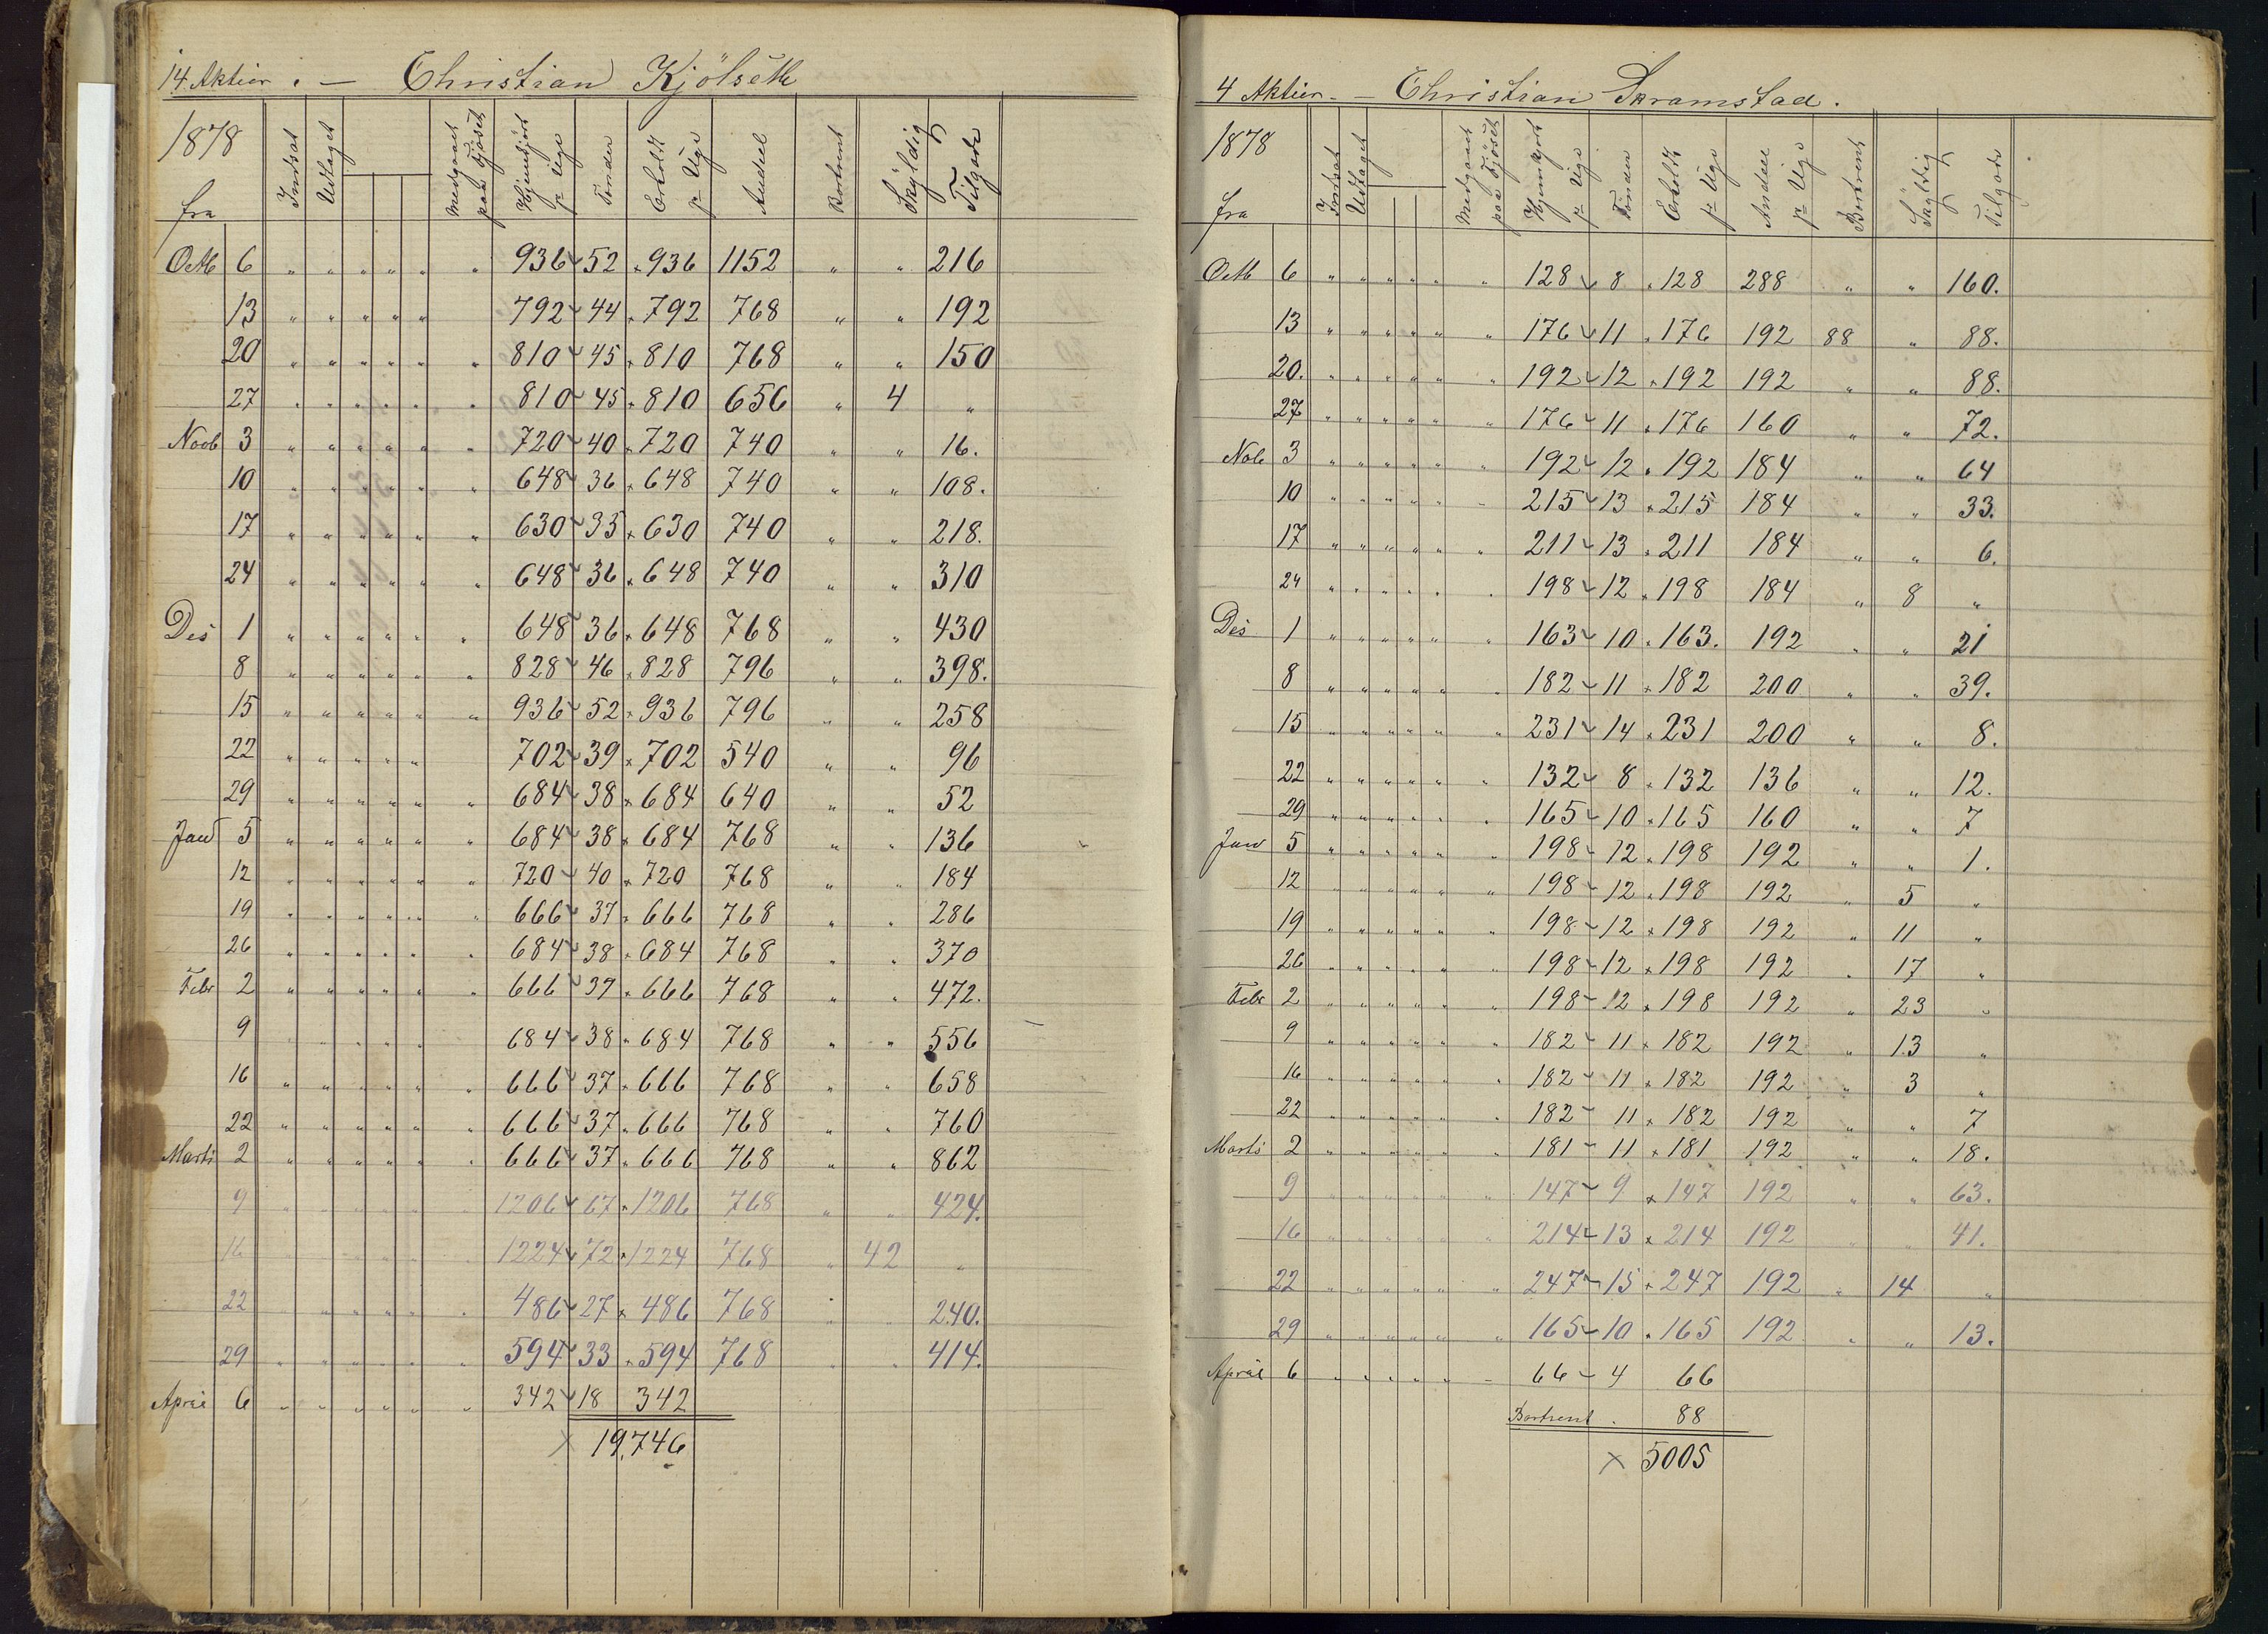 14 Aktier. — Christian Kjölseth
1878 fra Indsat Udtaget Medgaaet paa Fjöset Hjemkjört pr Uge Tönder Erholdt pr Uge Andeel Bortrent Skyldig Tilgode
Octb 6 " " " " " " 936 52 936 1152 " " 216
13 " " " " " 792 44 792 768 " " 192
20 " " " " " " 810 45 810 768 " " 150
27 " " " " " " 810 45 810 656 " 4 "
Novb 3 " " " " " " 720 40 720 740 " " 16.
10 " " " " " " 648 36 648 740 " " 108.
17 " " " " " " 630 35 630 740 " " 218.
24 " " " " " " 648 36 648 740 " " 310
Des 1 " " " " " " 648 36 648 768 " " 430
8 " " " " " " 828 46 828 796 " " 398.
15 " " " " " " 936 52 936 796 " " 258
22 " " " " " 702 39 702 540 " " 96
29 " " " " " " 684 38 684 640 " " 52
Janu 5 " " " " " " 684 38 684 768 " " 136
12 " " " " " " 720 40 720 768 " " 184
19 " " " " " " 666 37 666 768 " " 286
26 " " " " " " 684 38 684 768 " " 370
Febr 2 " " " " " " 666 37 666 768 " " 472.
9 " " " " " 684 38 684 768 " " 556
16 " " " " " " 666 37 666 768 " " 658
22 " " " " " " 666 37 666 768 " " 760
Marts 2 " " " " " " 666 37 666 768 " " 862
9 " " " " " " 1206 67 1206 768 " " 424.
16 " " " " " " 1224 72 1224 768 " 42 "
22 " " " " " " 486 27 486 768 " " 240.
29 " " " " " " 594 33 594 768 " " 414.
April 6 " " " " " " 342 18 342
× 19,746
4 Aktier. — Christian Skramstad.
1878 fra Indsat Udtaget Medgaaet paa Fjöset Hjemkjört pr Uge Tönder Erholdt pr Uge Andeel pr Uge Bortrent Skyldig Tilgode
Octb 6 " " " " " " 128 8 128 288 " " 160.
13 " " " " " " 176 11 176 192 88 " 88.
20. " " " " " " 192 12 192 192 " " 88.
27 " " " " " " 176 11 176 160 " " 72.
Nob 3 " " " " " " 192 12 192 184 " " 64
10 " " " " " " 215 13 215 184 " " 33.
17 " " " " " " 211 13 211 184 " " 6.
24 " " " " " " 198 12 198 184 " 8 "
Des 1 " " " " " " 163 10 163. 192 " " 21
8 " " " " " " 182 11 182 200 " " 39.
15 " " " " " " 231 14 231 200 " " 8.
22 " " " " " " 132 8 132 136 " " 12.
29 " " " " " " 165 10 165 160 " " 7
Janu 5 " " " " " " 198 12 198 192 " " 1.
12 " " " " " " 198 12 198 192 " 5 "
19 " " " " " " 198 12 198 192 " 11 "
26 " " " " " " 198 12 198 192 " 17 "
Febr 2 " " " " " " 198 12 198 192 " 23 "
9 " " " " " " 182 11 182 192 " 13 "
16 " " " " " " 182 11 182 192 " 3 "
22 " " " " " " 182 11 182 192 " " 7
Marts 2 " " " " " " 181 11 181 192 " " 18.
9 " " " " " " 147 9 147 192 " " 63.
16 " " " " " " 214 13 214 192 " " 41.
22 " " " " " " 247 15 247 192 " 14 "
29 " " " " " " 165 10 165 192 " " 13.
April 6 " " " " " " 66 4 66
Bortrent. 88
× 5005